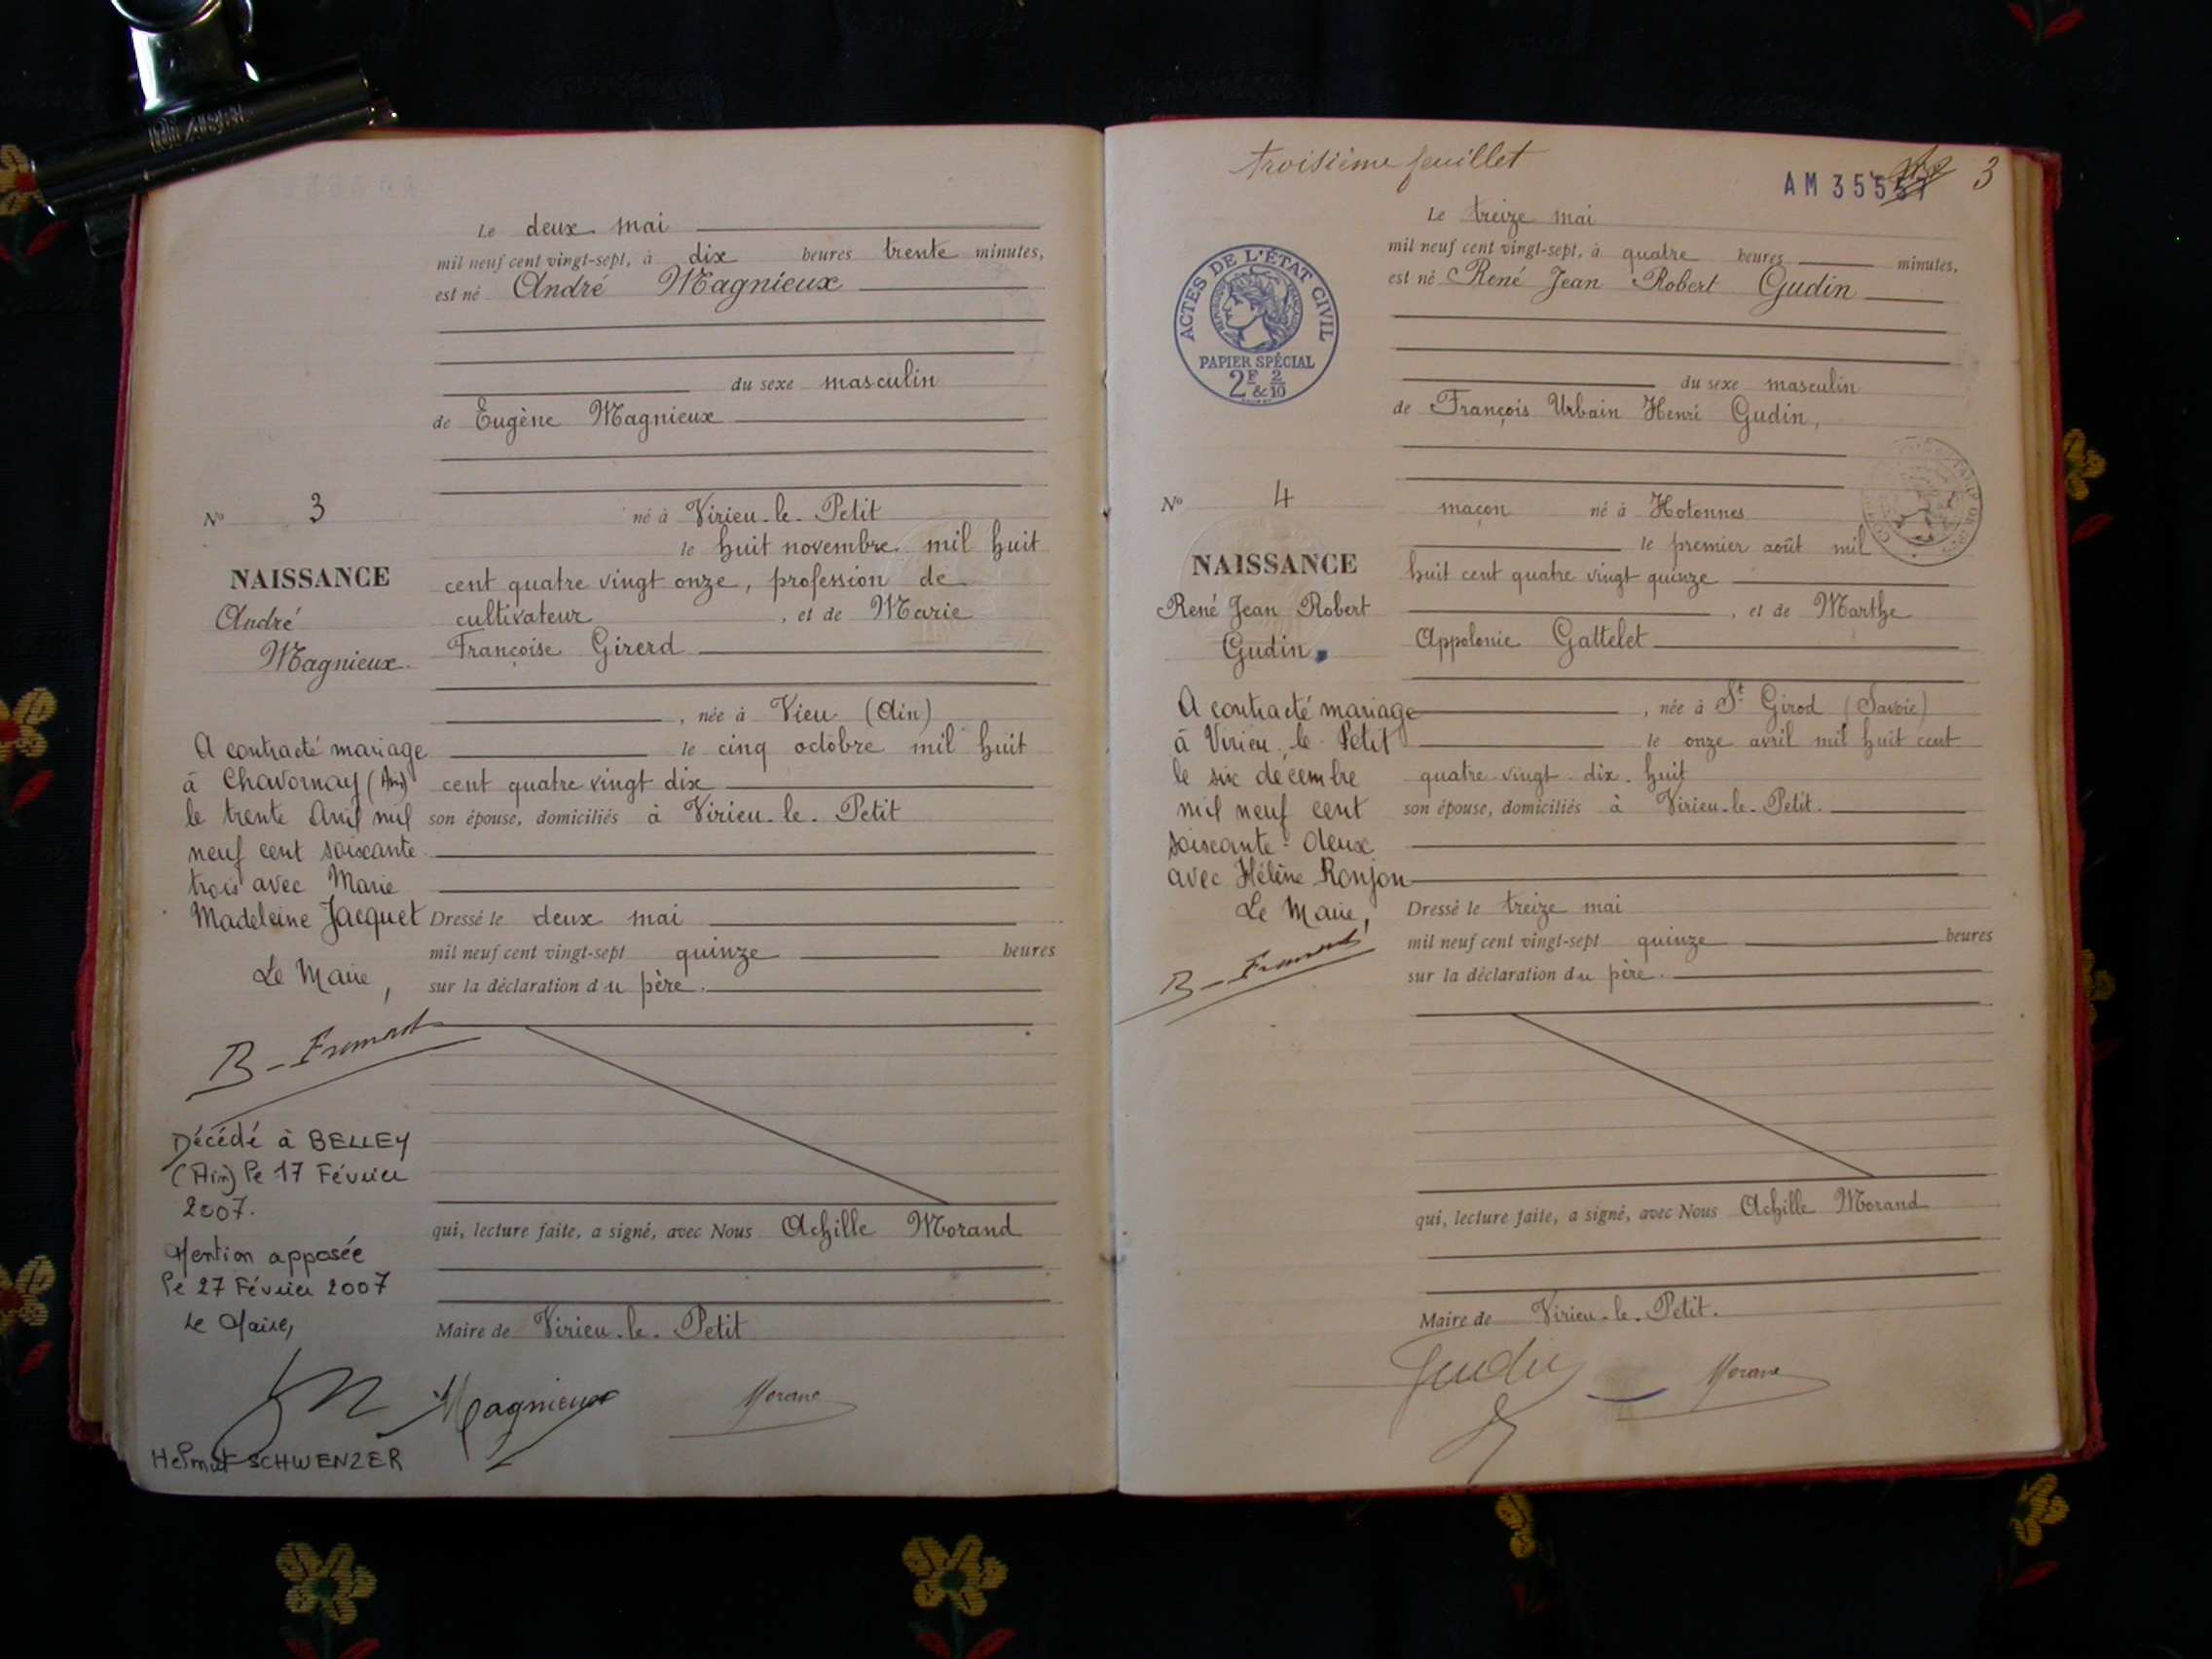 Le deux mai
mil neuf cent vingt-sept, à dix heures trente minutes,
est né André Magnieux
du sexe masculin
de Eugène Magnieux
né à Virieu-le-Petit
le huit novembre mil huit
cent quatre vingt onze, profession de
cultivateur, et de Marie
Françoise Girerd
, née à Vieu (Ain)
le cinq octobre mil huit
cent quatre vingt dix
son épouse, domiciliés à Virieu-le-Petit
Dressé le deux mai
mil neuf cent vingt-sept quinze heures
sur la déclaration du père.
qui, lecture faite, a signé, avec Nous Achille Morand
Maire de Virieu-le-Petit
Magnieux
N° 3
NAISSANCE
André
Magnieux.
A contracté mariage
à Chavornay (Ain)
le trente Avril mil
neuf cent soixante
trois avec Marie
Madeleine Jacquet
Le Maire,
Décédé à BELLEY
(Ain) le 17 Février
2007.
Mention apposée
le 27 Février 2007
Le Maire,
Helmut SCHWENZER
troisième feuillet
3
Le treize mai
mil neuf cent vingt-sept, à quatre heures minutes,
est né René Jean Robert Gudin
du sexe masculin
de François Urbain Henri Gudin,
maçon né à Hotonnes
le premier août mil
huit cent quatre vingt quinze
, et de Marthe
Appolonie Gattelet
, née à St Girod (Savoie)
le onze avril mil huit cent
quatre-vingt-dix-huit
son épouse, domiciliés à Virieu-le-Petit.
Dressé le treize mai
mil neuf cent vingt-sept quinze heures
sur la déclaration du père.
qui, lecture faite, a signé, avec Nous Achille Morand
Maire de Virieu-le-Petit.
Gudin
ACTES DE L'ÉTAT CIVIL
PAPIER SPÉCIAL
2F & 2/10
N° 4
NAISSANCE
René Jean Robert
Gudin
A contracté mariage
à Virieu-le-Petit
le six décembre
mil neuf cent
soixante-deux
avec Hélène Ronjon
Le Maire,